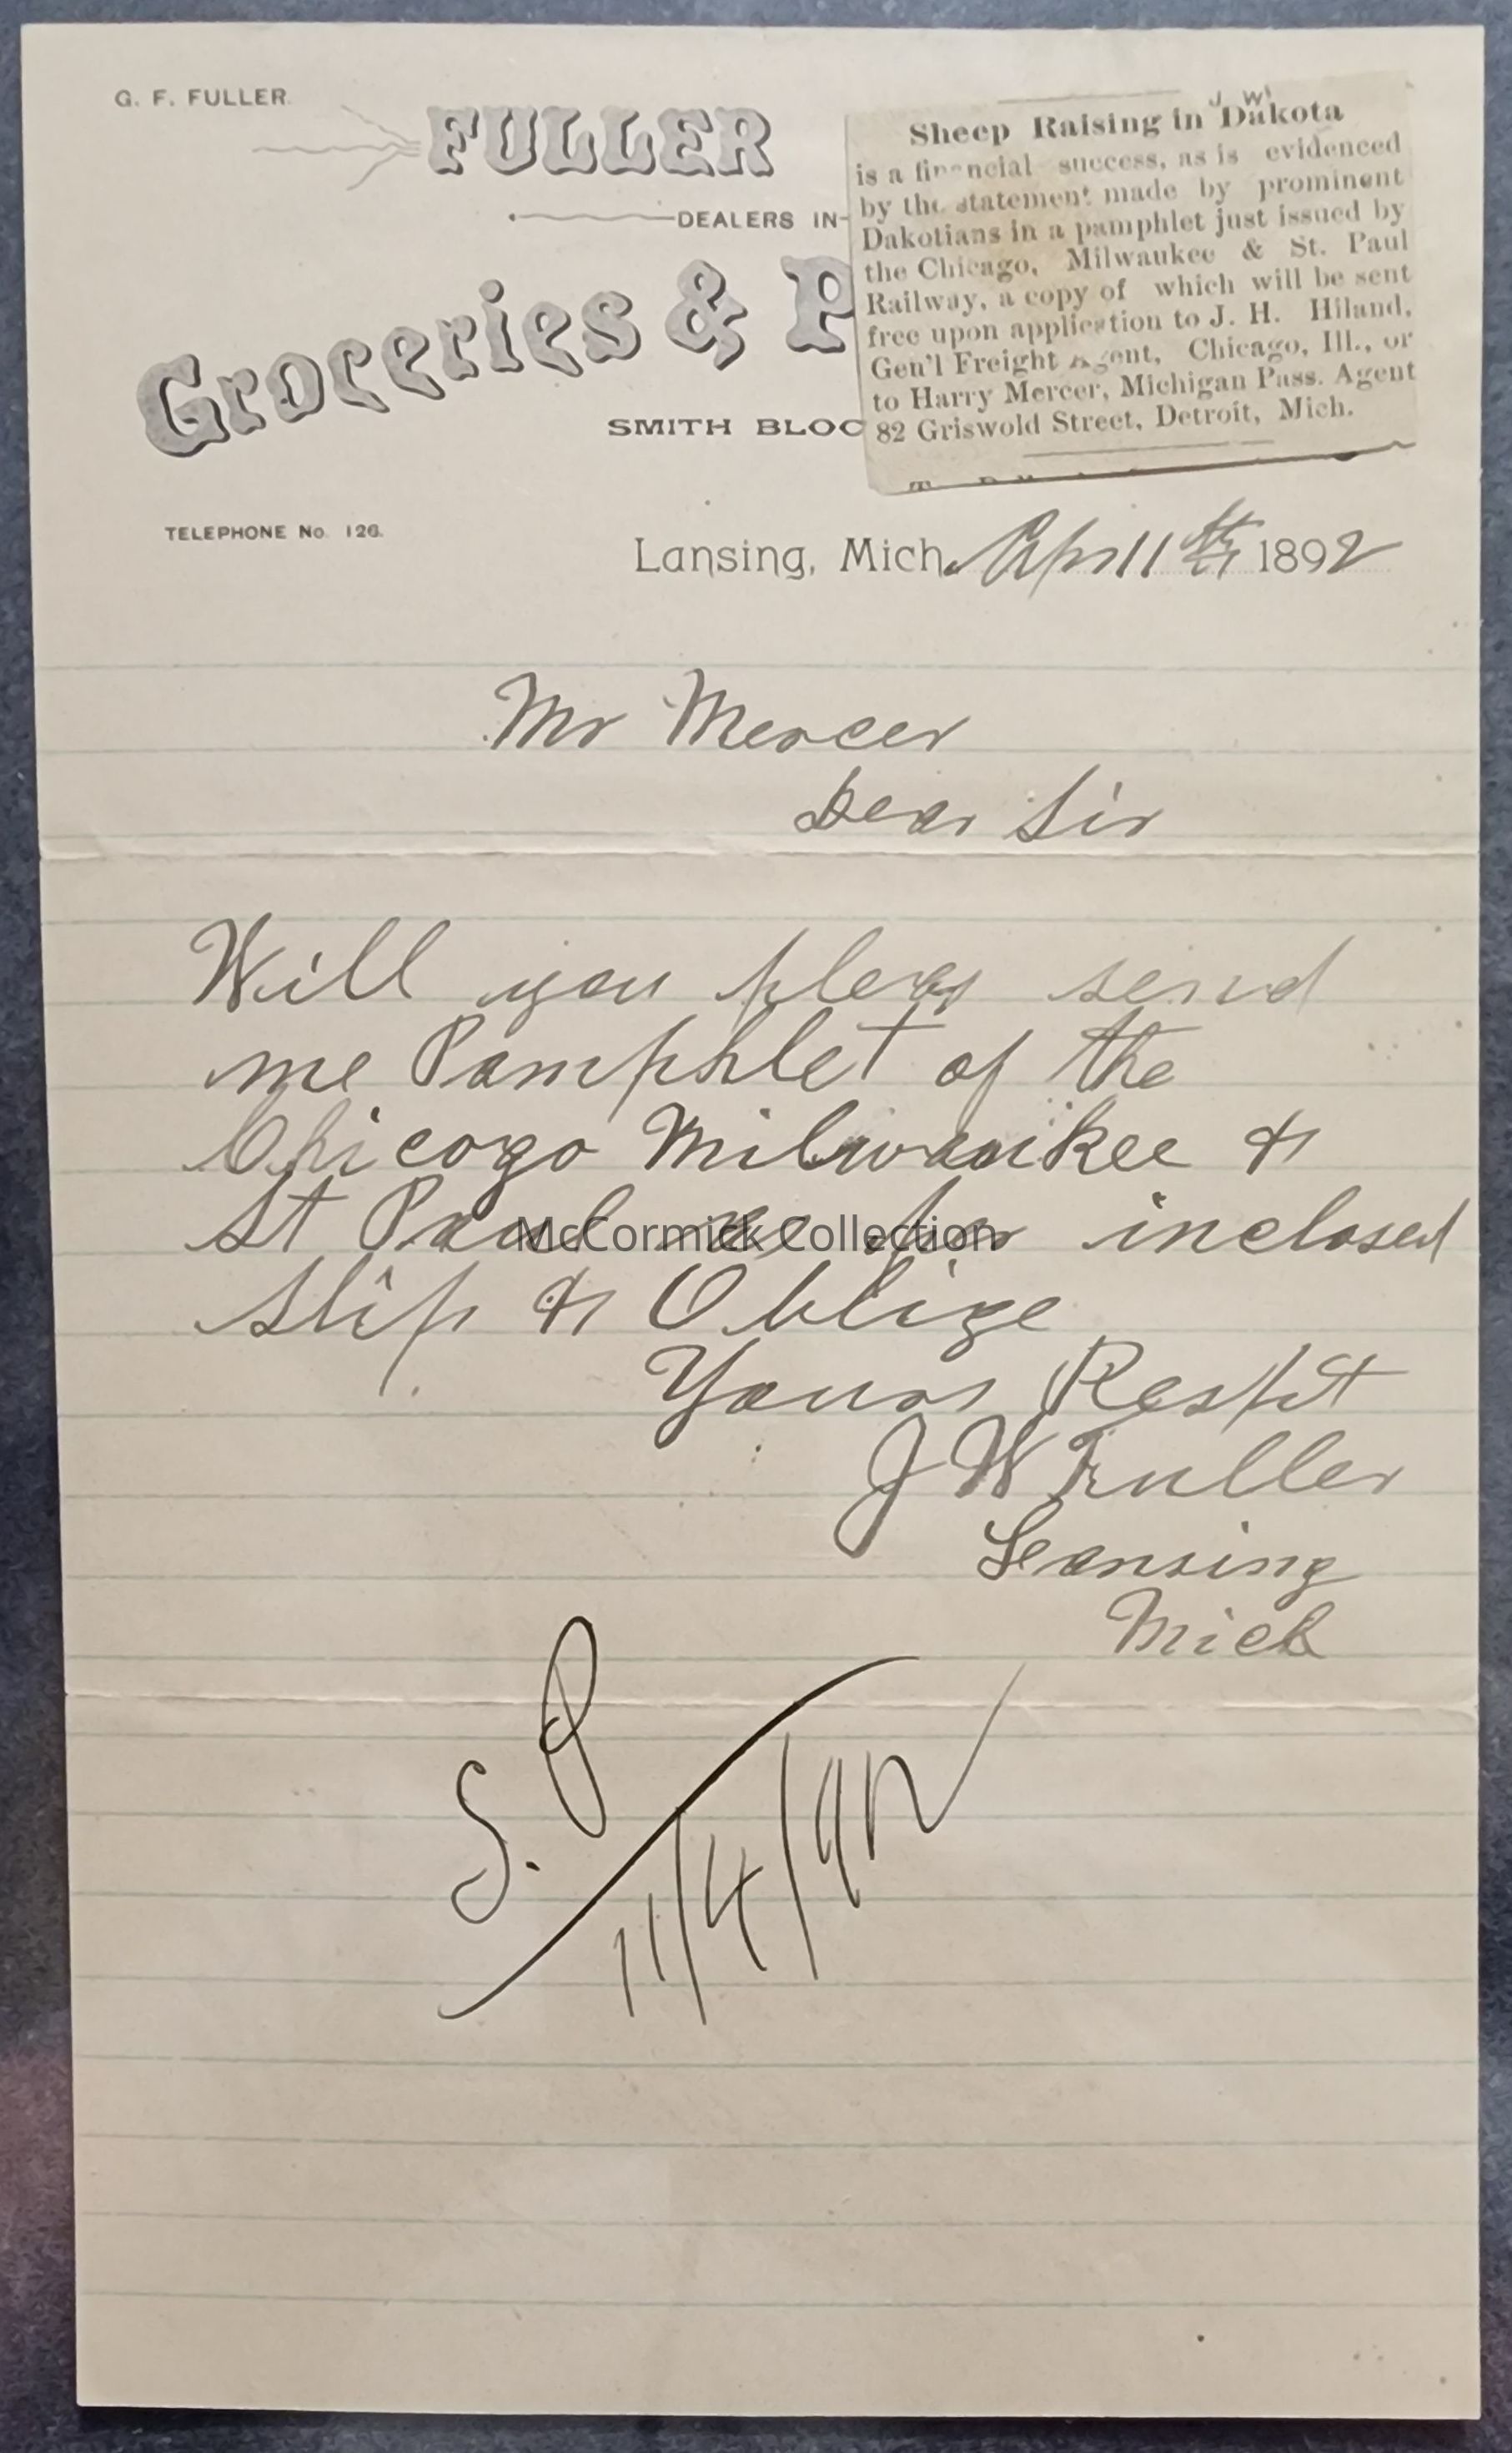 G. F. FULLER.
J. W.
FULLER
DEALERS IN
Groceries & P
SMITH BLOC
TELEPHONE No. 126.
Sheep Raising in Dakota
is a financial success, as is evidenced
by the statement made by prominent
Dakotians in a pamphlet just issued by
the Chicago, Milwaukee & St. Paul
Railway, a copy of which will be sent
free upon application to J. H. Hiland,
Gen'l Freight Agent, Chicago, Ill., or
to Harry Mercer, Michigan Pass. Agent
82 Griswold Street, Detroit, Mich.
Lansing, Mich. Apr 11th 1892
Mr Mercer
Dear Sir
Will you pleas send
me Pamphlet of the
Chicogo Milwaukee &
St Paul as per inclosed
slip & Oblige
Yours Respt
J W Fuller
Lansing
Mich
McCormick Collection
11/4/92